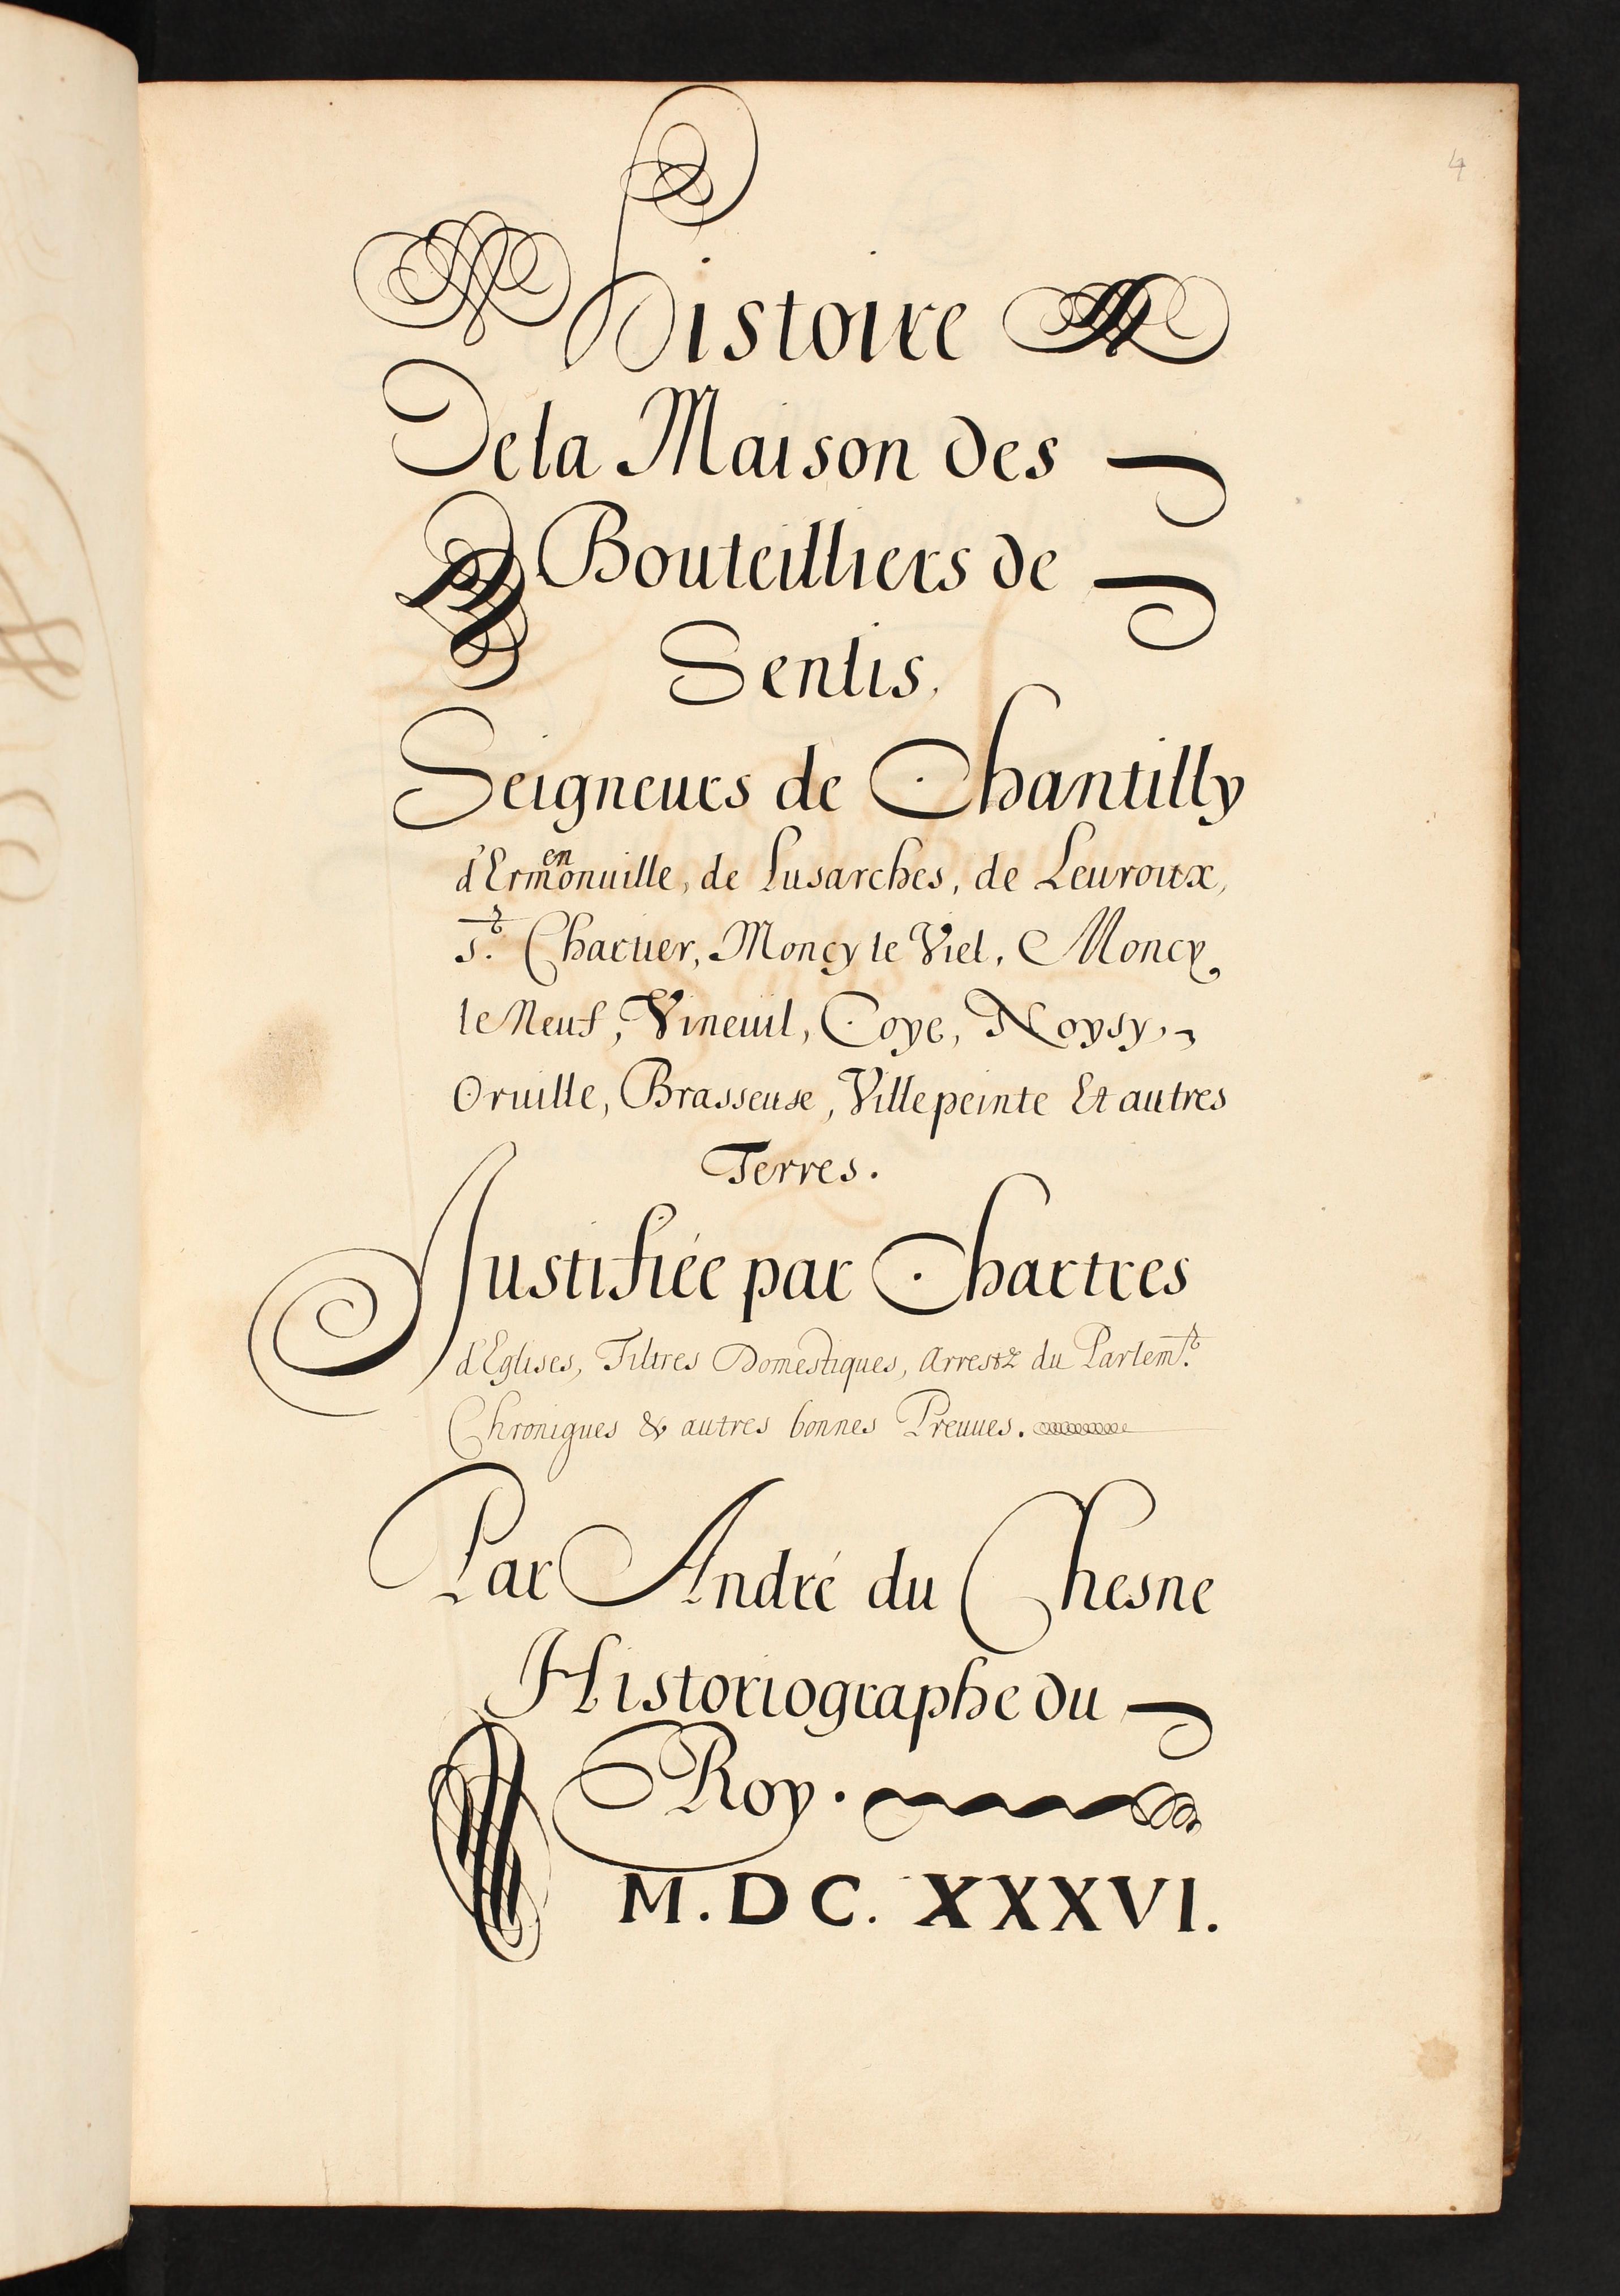 4
Histoire
De la Maison des
Bouteilliers de
Senlis,
Seigneurs de Chantilly
d'Ermenonuille, de Lusarches, de Leuroux,
St. Chartier, Moncy le Viel, Moncy
le Neuf, Vineuil, Coye, Noysy,
Oruille, Brasseuse, Villepeinte Et autres
Terres.
Justifiée par Chartres
d'Eglises, Tiltres Domestiques, Arrestz du Parlemt.
Chroniques & autres bonnes Preuues.
Par André du Chesne
Historiographe du
Roy.
M.DC. XXXVI.